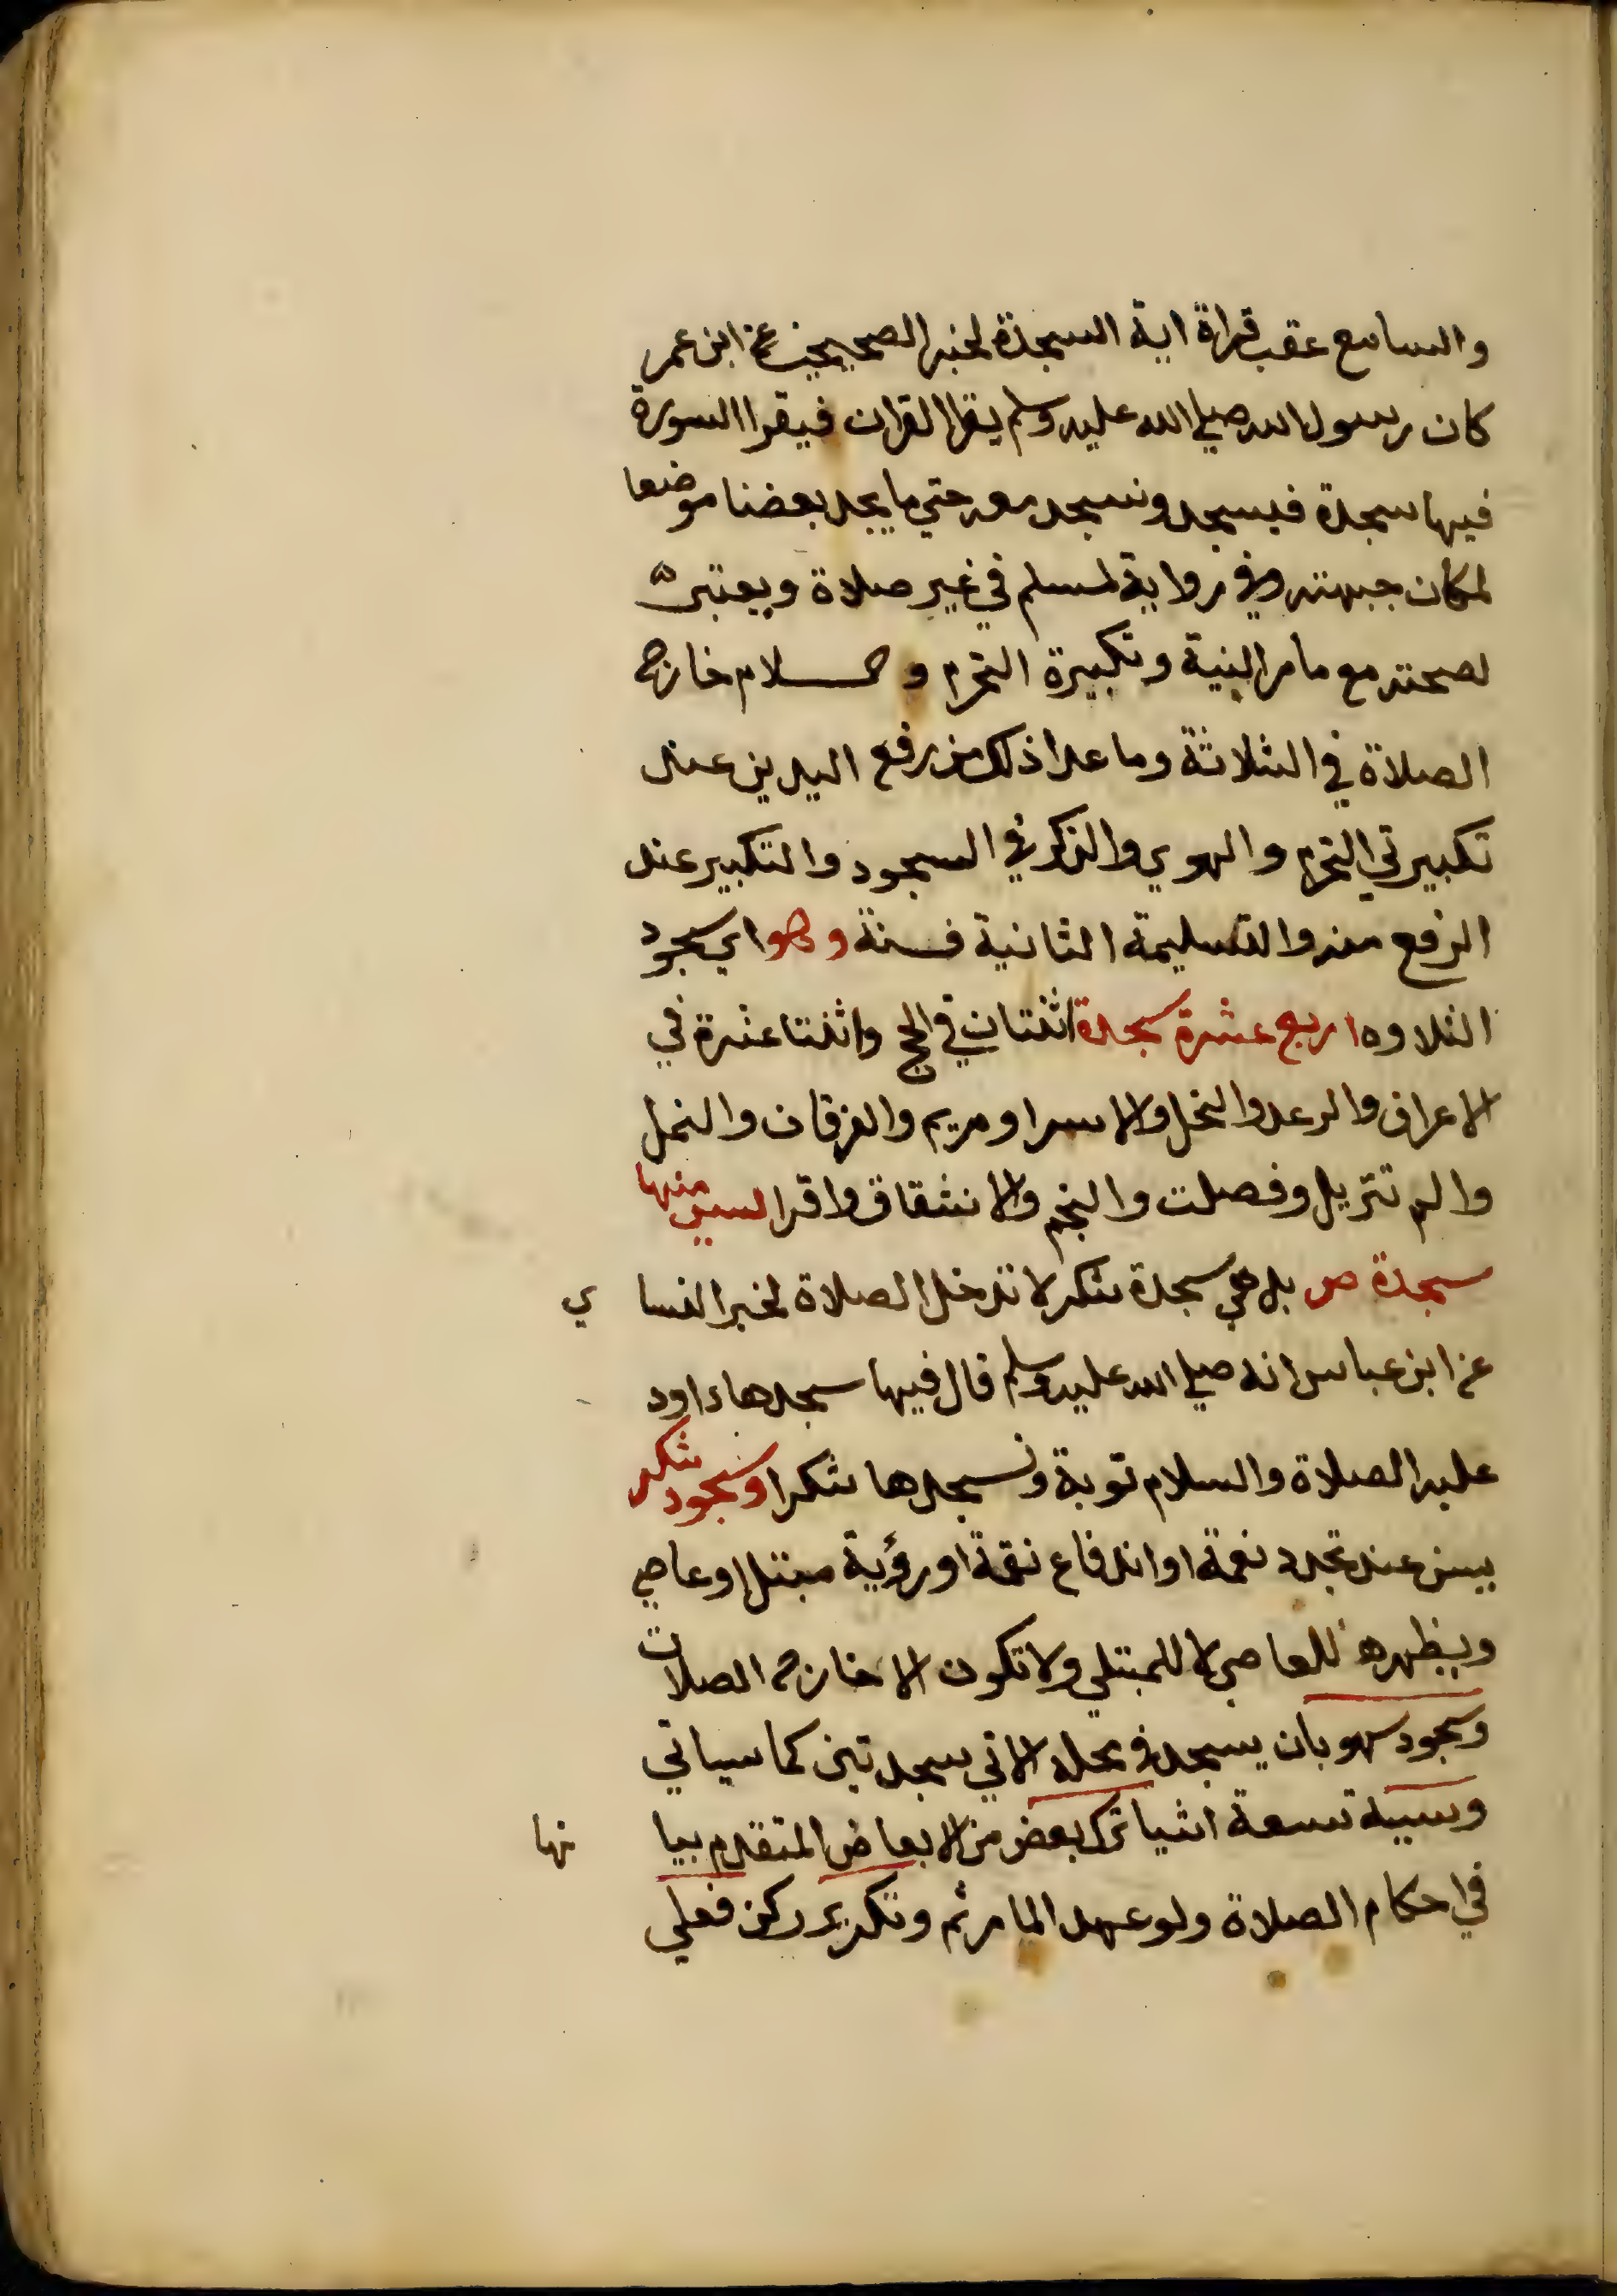 والسامع عقب قراة اية السجدة لخبر الصحيحين عن ابن عمر
كان رسول الله صلي الله عليه وسلم يقرا القران فيقرا السورة
فيها سجدة فيسجد ونسجد معه حتي ما يجد بعضنا موضعا
لمكان جبهته وفي رواية لمسلم في غير صلاة ويعتبر
لصحته مع مامر النية وتكبيرة التحرم و سلام خارج
الصلاة في الثلاثة وما عدا ذلك من رفع اليدين عند
تكبيرتي التحرم والهوي والذكر في السجود والتكبير عند
الرفع منه والتسليمة الثانية فسنة وهو اي سجود
التلاوه اربع عشرة سجدة اثنتان في الحج واثنتا عشرة في
الاعراف والرعد والنحل والاسرا ومريم والفرقان والنمل
والم تنزيل وفصلت والنجم والانشقاق واقرا ليس منها
سجدة ص بل هي سجدة شكر لا تدخل الصلاة لخبر النساي
عن ابن عباس انه صلي الله عليه وسلم قال فيها سجدها داود
عليه الصلاة والسلام توبة ونسجدها شكرا وسجود شكر
يسن عند تجدد نعمة او اندفاع نقمة او رؤية مبتلا او عاصي
ويظهرها للعاصي لا للمبتلي ولا تكون الا خارج الصلات
وسجود سهو بان يسجد في محله الاتي سجدتين كما سياتي
وسببه تسعة اشيا ترك بعض من الابعاض المتقدم بيانها
في احكام الصلاة ولو عهد المامر ثم وتكرير ركن فعلي